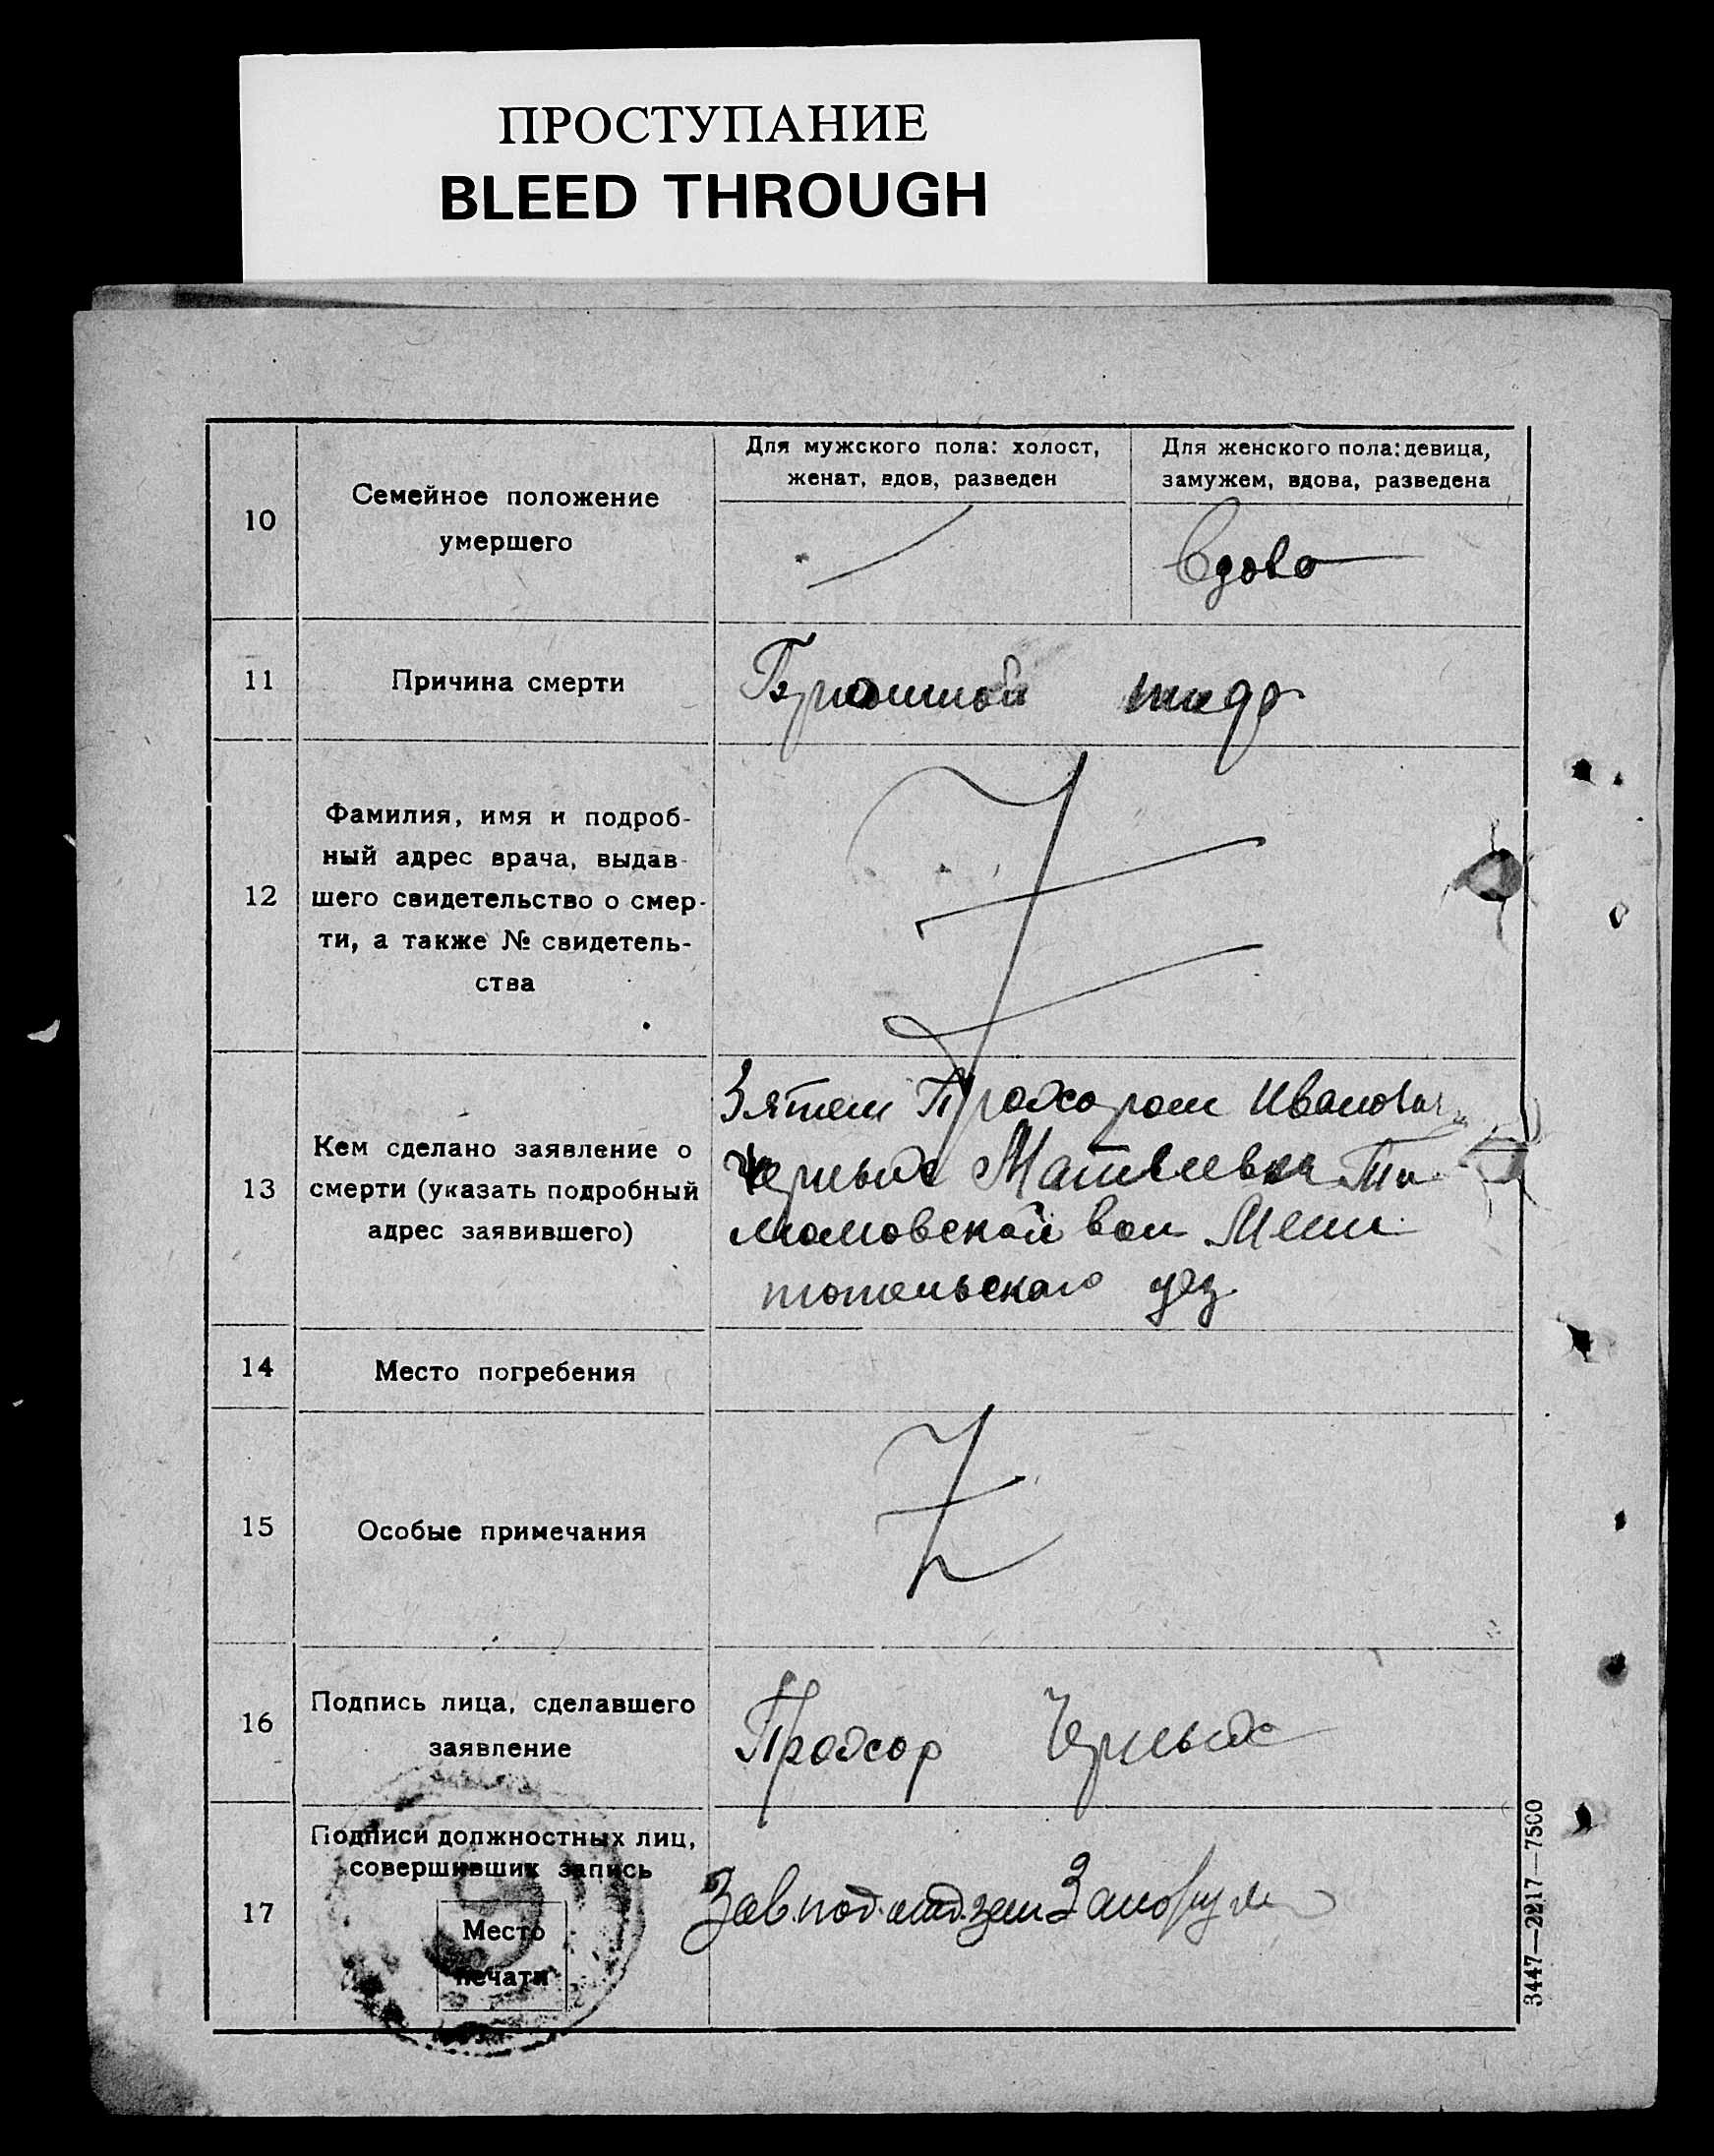 ПРОСТУПАНИЕ
BLEED THROUGH
10
Семейное положение
умершего
Для мужского пола: холост,
женат, вдов, разведен
Для женского пола: девица,
замужем, вдова, разведена
Вдова
11
Причина смерти
Брюшной тиф
12
Фамилия, имя и подроб-
ный адрес врача, выдав-
шего свидетельство о смер-
ти, а также № свидетель-
ства
13
Кем сделано заявление о
смерти (указать подробный
адрес заявившего)
Зятем Прохором Иванович
Черных
уез
14
Место погребения
15
Особые примечания
16
Подпись лица, сделавшего
заявление
Прохор Черных
17
Подписи должностных лиц,
совершивших запись
Место
печати
Зав.
3447—2217—7500